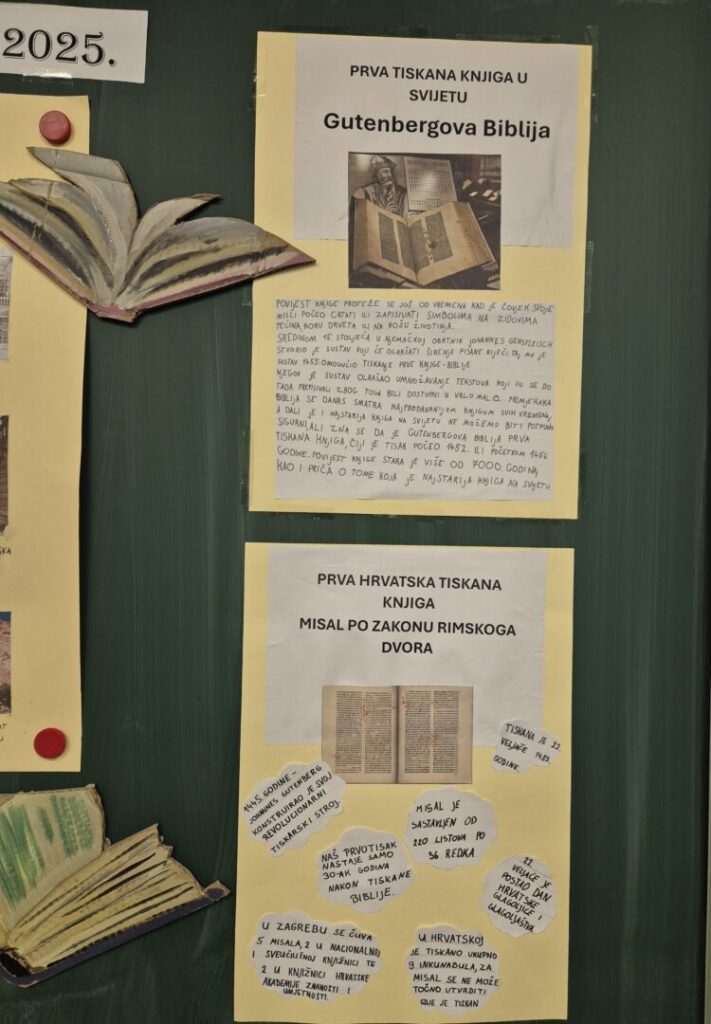 2025.
PRVA TISKANA KNJIGA U
SVIJETU
Gutenbergova Biblija
POVIJEST KNJIGE PROTEŽE SE JOŠ OD VREMENA KAD JE ČOVJEK SVOJE
MISLI POČEO CRTATI ILI ZAPISIVATI SIMBOLIMA NA ZIDOVIMA
PEĆINA, KORU DRVETA ILI NA KOŽU ŽIVOTINJA.
SREDINOM 15. STOLJEĆA U NJEMAČKOJ OBRTNIK JOHANNES GENSFLEISCH
STVORIO JE SUSTAV KOJI ĆE OLAKŠATI ŠIRENJE PISANE RIJEČI, TAJ MU JE
SUSTAV 1455. OMOGUĆIO TISKANJE PRVE KNJIGE - BIBLIJE
NJEGOV JE SUSTAV OLAKŠAO UMNOŽAVANJE TEKSTOVA KOJI SU SE DO
TADA PREPISIVALI ZBOG TOGA BILI DOSTUPNI U VRLO MALO PRIMJERAKA
BIBLIJA SE DANAS SMATRA NAJPRODAVANIJOM KNJIGOM SVIH VREMENA,
A DALI JE I NAJSTARIJA KNJIGA NA SVIJETU NE MOŽEMO BITI POTPUNO
SIGURNI, ALI ZNA SE DA JE GUTENBERGOVA BIBLIJA PRVA
TISKANA KNJIGA, ČIJI JE TISAK POČEO 1452. ILI POČETKOM 1456.
GODINE. POVIJEST KNJIGE STARA JE VIŠE OD 7000. GODINA,
KAO I PRIČA O TOME KOJA JE NAJSTARIJA KNJIGA NA SVIJETU
PRVA HRVATSKA TISKANA
KNJIGA
MISAL PO ZAKONU RIMSKOGA
DVORA
TISKANA JE 22.
VELJAČE 1483.
GODINE.
1445. GODINE -
JOHNINES GUTENBERG
KONSTRUIRAO JE SVOJ
REVOLUCIONARNI
TISKARSKI STROJ.
MISAL JE
SASTAVLJEN OD
220 LISTOVA PO
36 REDKA
NAŠ PRVOTISAK
NASTAJE SAMO
30-AK GODINA
NAKON TISKANE
BIBLIJE.
22.
VELJAČE JE
POSTAO DAN
HRVATSKE
GLAGOLJICE I
GLAGOLJAŠTVA
U ZAGREBU SE ČUVA
5 MISALA, 2 U NACIONALNOJ
I SVEUČILIŠNOJ KNJIŽNICI TE
2 U KNJIŽNICI HRVATSKE
AKADEMIJE ZNANOSTI I
UMJETNOSTI.
U HRVATSKOJ
JE TISKANO UKUPNO
9 INKUNABULA, ZA
MISAL SE NE MOŽE
TOČNO UTVRDITI
GDJE JE TISKAN